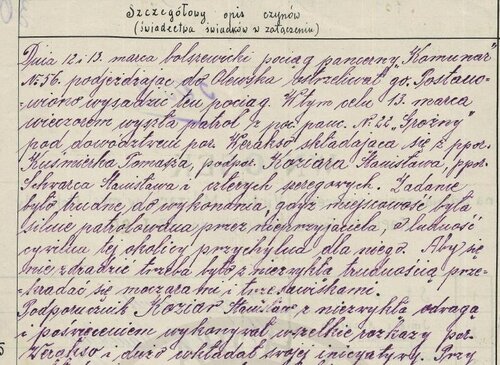 Szczegółowy opis czynów
(świadectwa świadków w załączeniu)
Dnia 12 i 13. marca bolszewicki pociąg pancerny "Komunar"
№ 56. podjeżdżając do Olewska ostrzeliwał go. Postano-
wiono wysadzić ten pociąg. W tym celu 13. marca
wieczorem wyszła patrol z poc. panc. № 22 "Groźny"
pod dowództwem por. Werakso składająca się z ppor.
Kuśmierka Tomasza, podpor. Koziara Stanisława, ppor.
Schwarca Stanisława i czterech szeregowych. Zadanie
było trudne do wykonania, gdyż miejscowość była
silnie patrolowana przez nieprzyjaciela, a ludność
cywilna tej okolicy przychylna dla niego. Aby się
nie zdradzić trzeba było z niezwykłą trudnością prze-
kradać się moczarami i trzesawiskami.
Podporucznik Koziar Stanisław z niezwykłą odwagą
i poświęceniem wykonywał wszelkie rozkazy por.
Werakso i dużo wkładał swojej inicjatywy. Przy